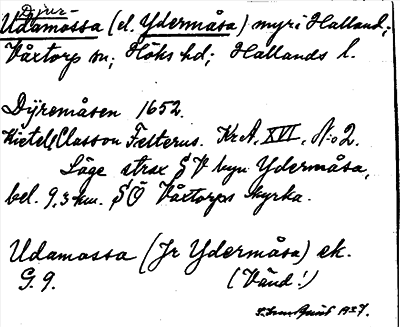 Djur-
Udamossa (el. Ydermåsa) myr i Halland;
Våxtorp sn; Höks hd; Hallands l.
Dÿremåsen 1652.
Kietell Classon Felterus. Kr.A. XVI, N:o 2.
Läge strax SV byn Ydermåsa,
bel. 9,3 km. SÖ Våxtorps kyrka.
Udamossa (Jr Ydermåsa) ek.
G. 9. (Vänd!)
1927.